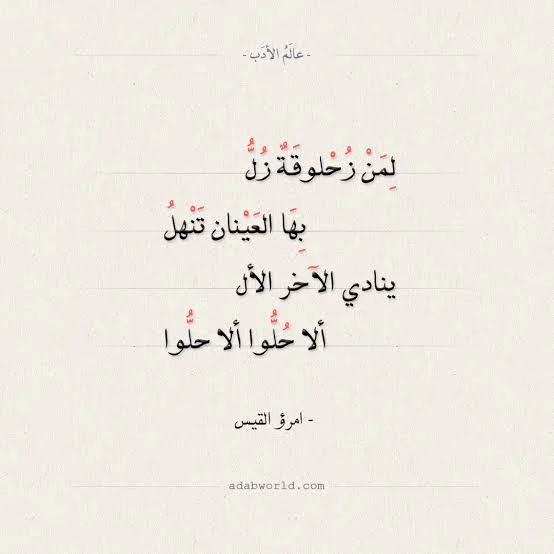 - عالَمُ الأدَب -
لِمَنْ زُحْلوقَةٌ زُلُّ
بِهَا العَيْنان تَنْهلُ
ينادي الآخر الأل
ألا حُلُّوا ألا حلُّوا
- امرؤ القيس
adabworld.com